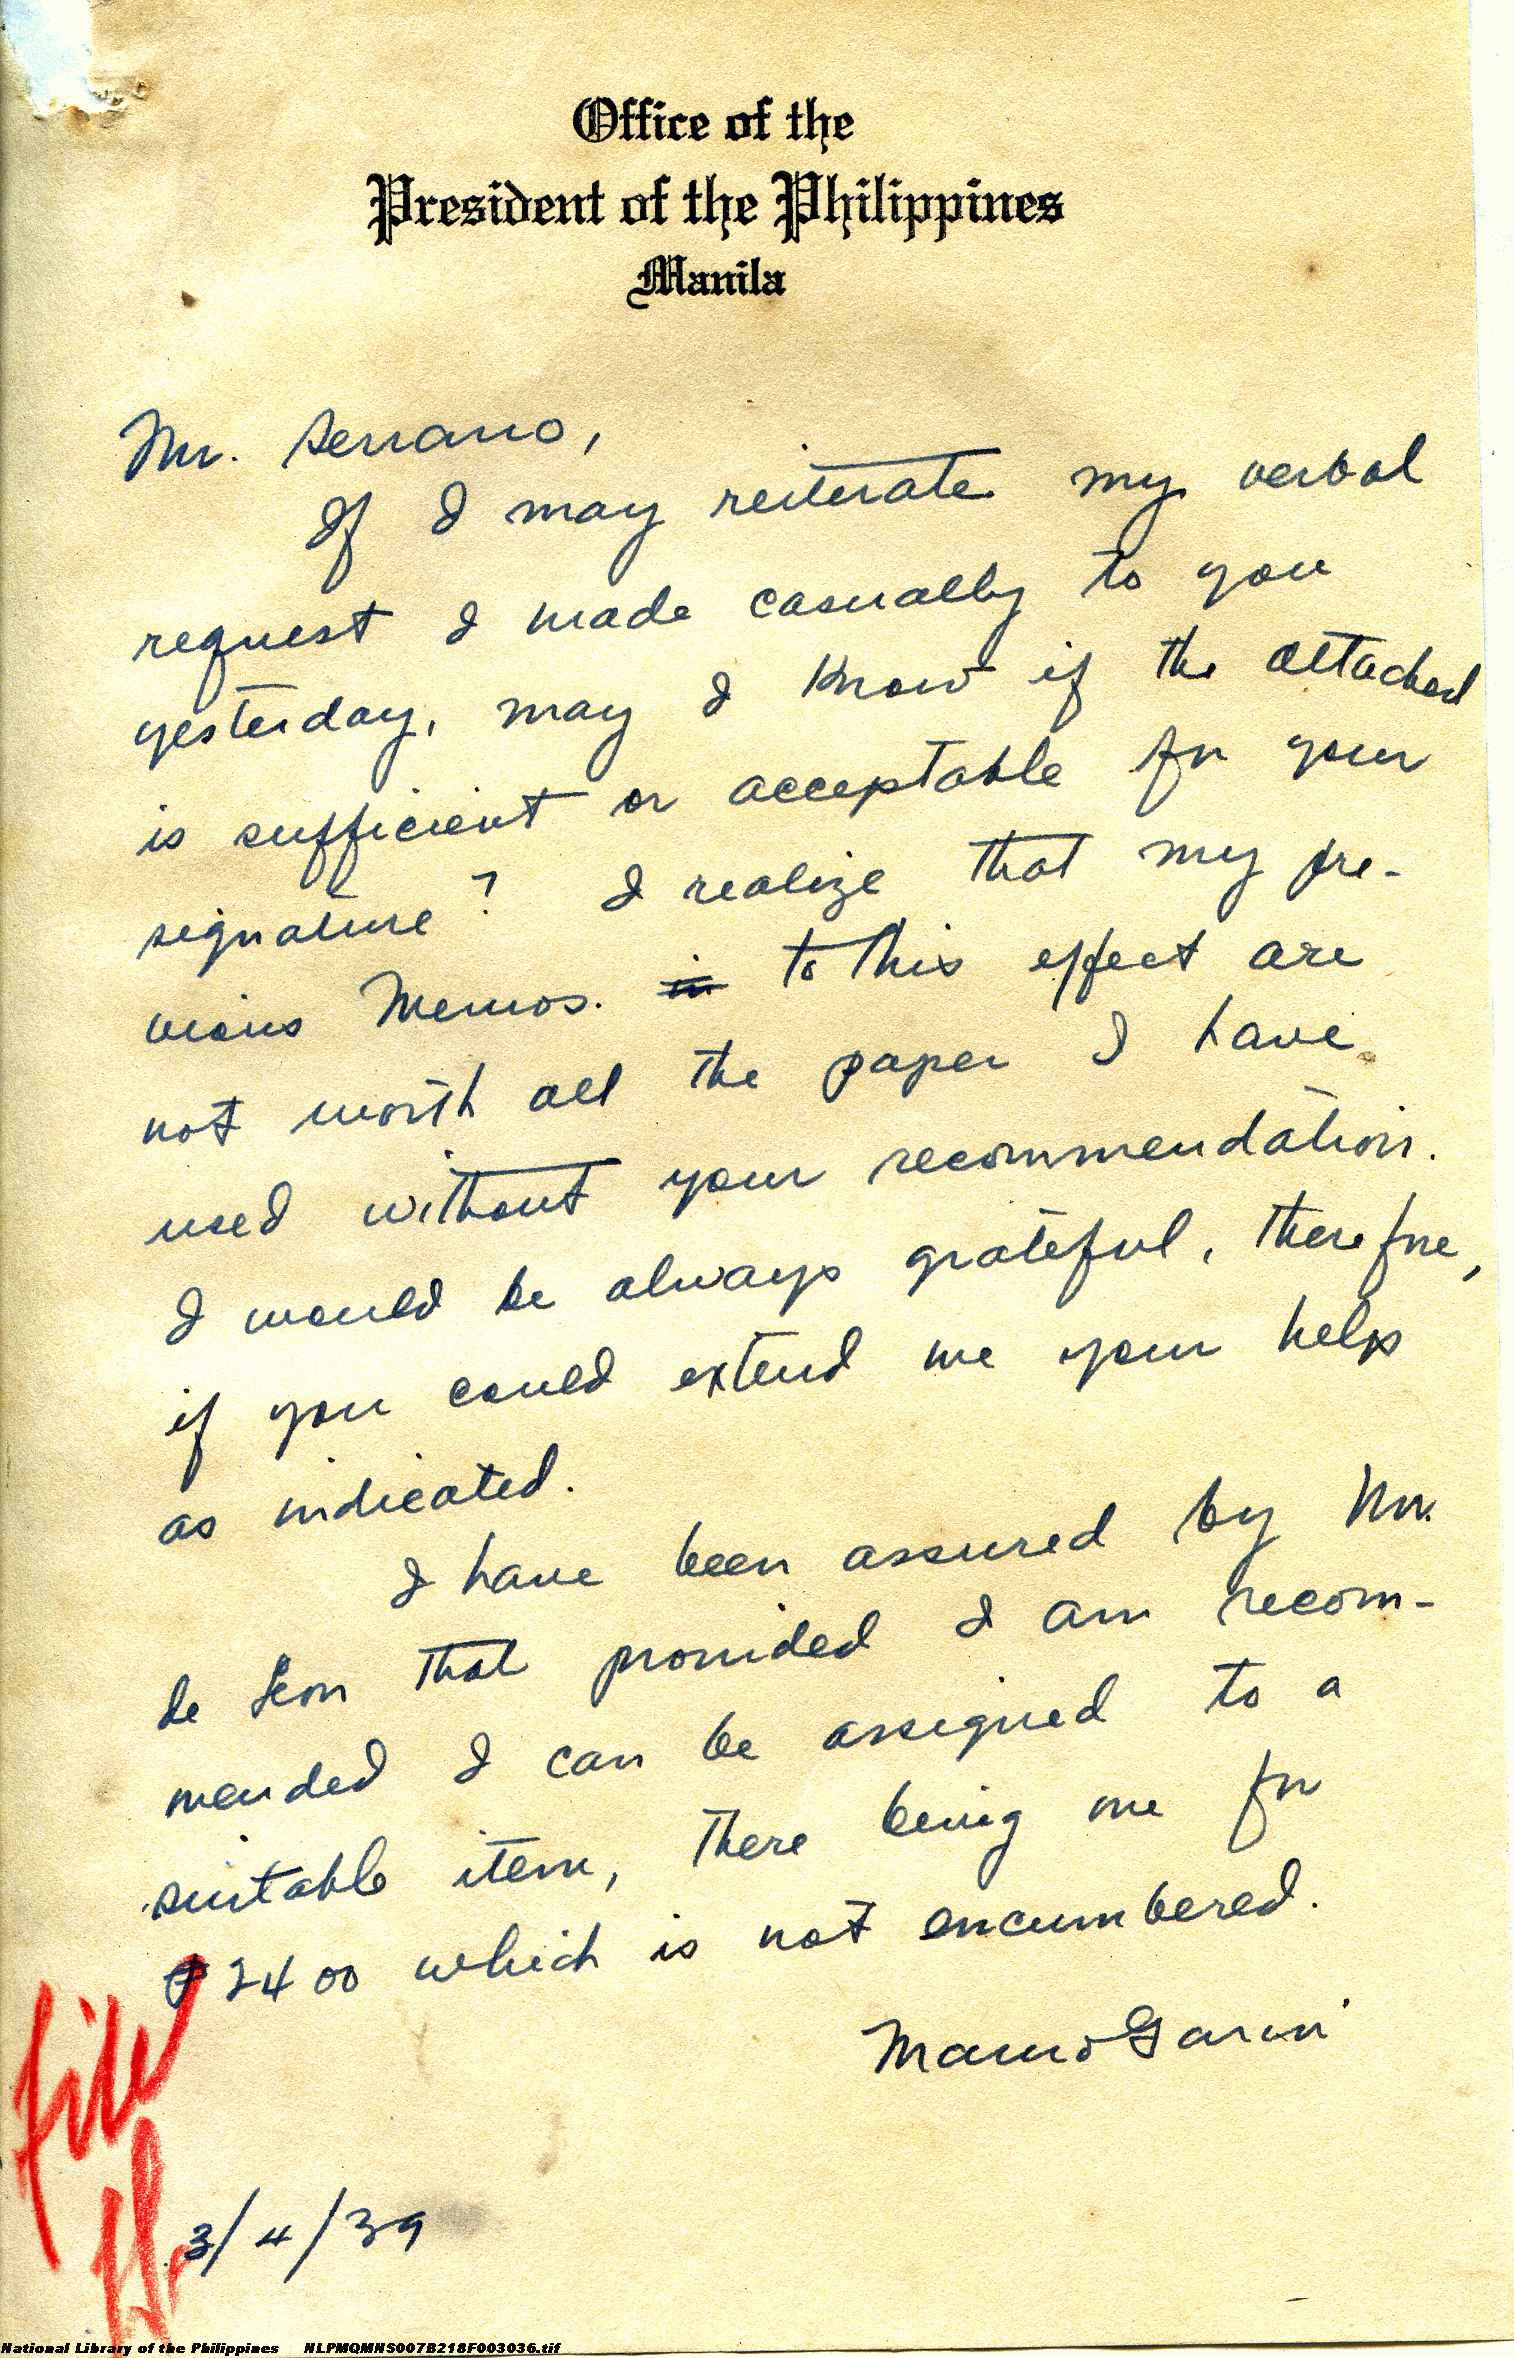 Office of the
President of the Philippines
Manila
Mr. Serrano,
If I may reiterate my verbal
request I made casually to you
yesterday, may I know if the attached
is sufficient or acceptable for your
signature? I realize that my pre-
vious Memos. in to this effect are
not worth all the paper I have
used without your recommendation.
I would be always grateful, therefore,
if you could extend me your help
as indicated.
I have been assured by Mr.
de Leon that provided I am recom-
mended I can be assigned to a
suitable item, there being one for
₱2400 which is not encumbered.
Mario Garin
file
3/4/39
National Library of the Philippines NLPMQMNS007B218F003036.tif